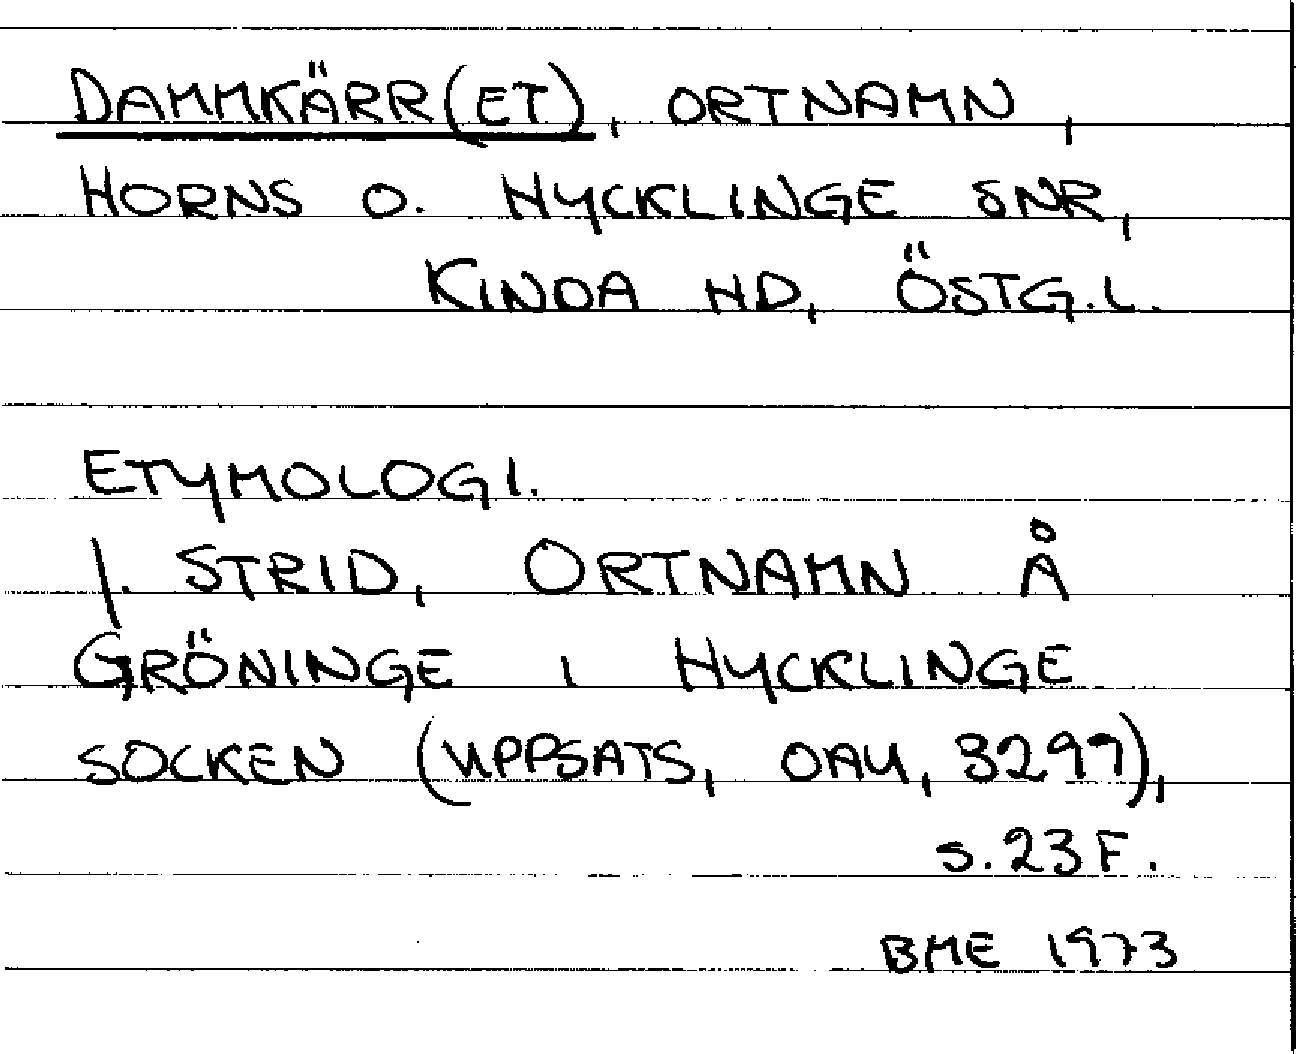 DAMMKÄRR(ET), ORTNAMN,
HORNS O. HYCKLINGE SNR,
KINDA HD, ÖSTG.L.
ETYMOLOGI.
J. STRID, ORTNAMN Å
GRÖNINGE I HYCKLINGE
SOCKEN (UPPSATS, OAU, 3297),
S. 23 F.
BME 1973